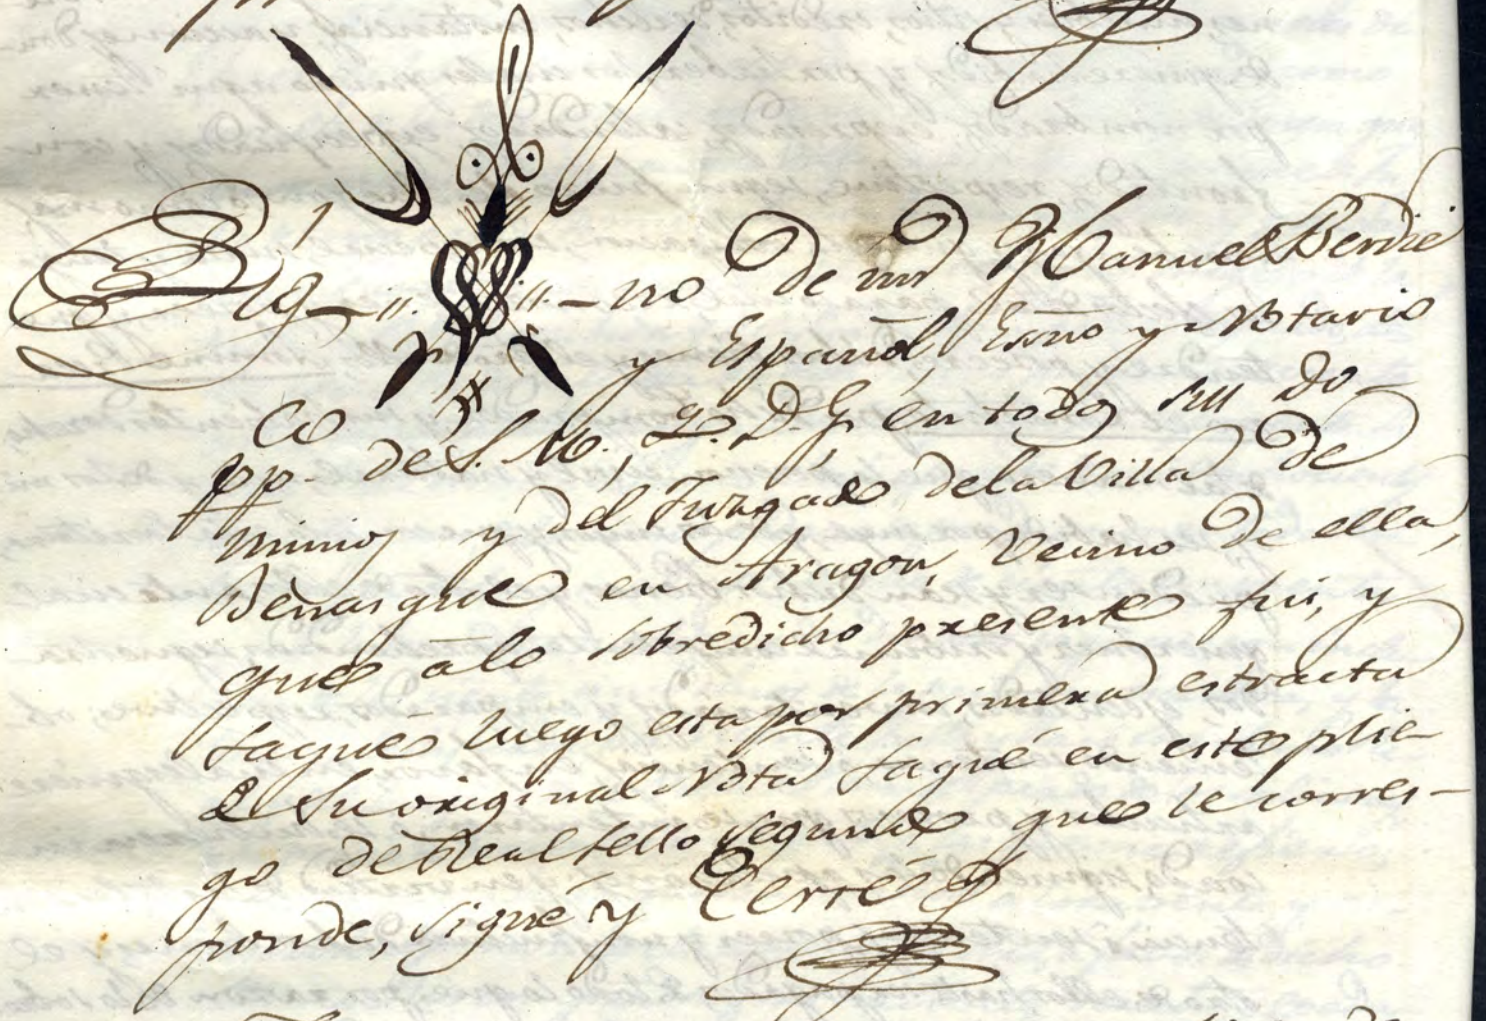 Sig- -no de mi Manuel Berdie
y Español, Esno y Notario
Co
pp. de S. M., q. D. G. en todos sus Do-
minios y del Juzgado dela Villa de
Benasque en Aragon, Vecino de ella,
que a lo sobredicho presente fui, y
saqué luego esta por primera estracta
de Su original Nota saqué en este plie-
go de Real sello segundo que le corres-
ponde, signé y Cerré